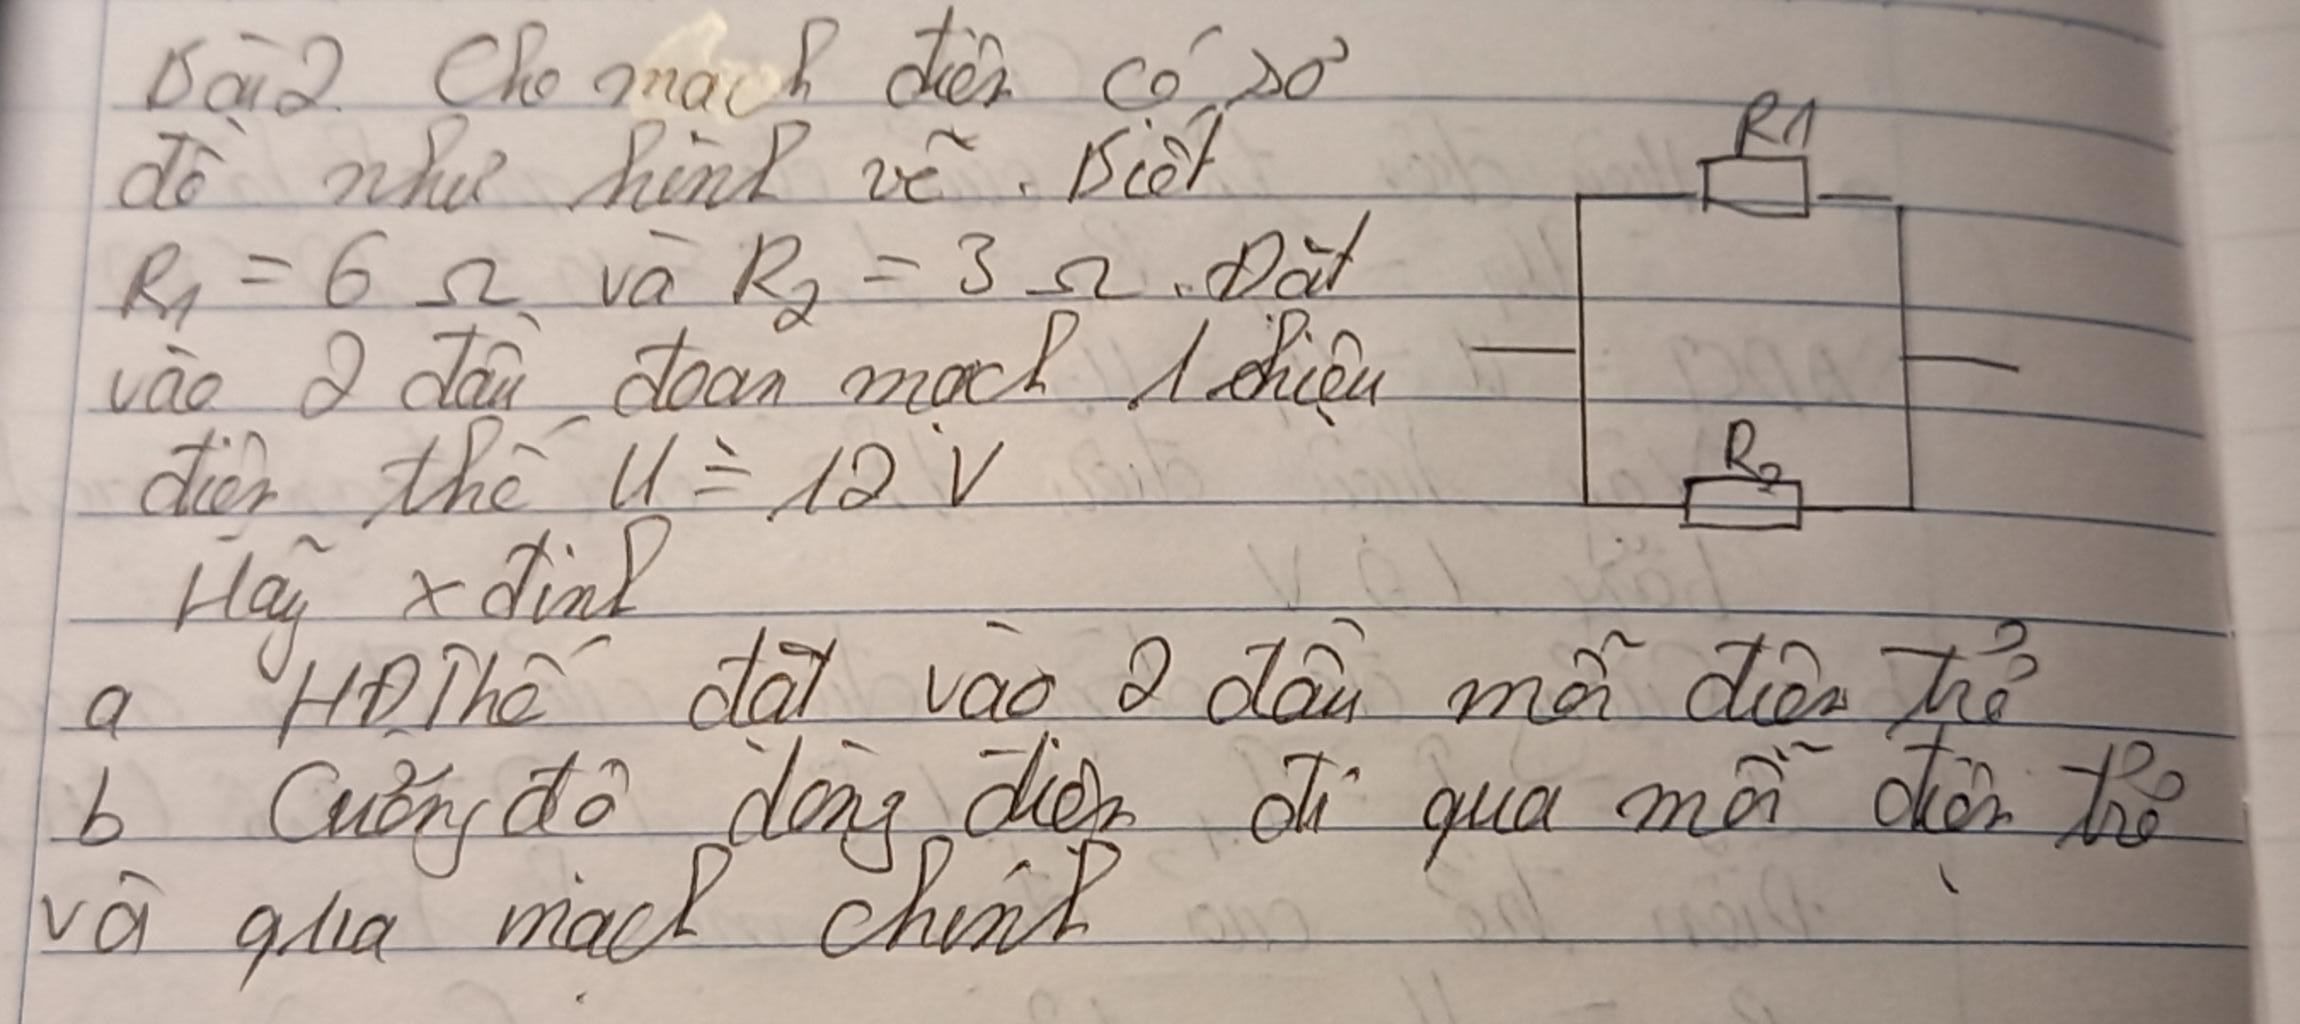 Bài 2. Cho mạch điện có sơ
đồ như hình vẽ. Biết
R1 = 6 Ω và R2 = 3 Ω. Đặt
vào 2 đầu đoạn mạch 1 hiệu
điện thế U = 12 V
Hãy x định
a HĐThế đặt vào 2 đầu mỗi điện trở
b Cường độ dòng điện đi qua mỗi điện trở
và qua mạch chính
R1
R2